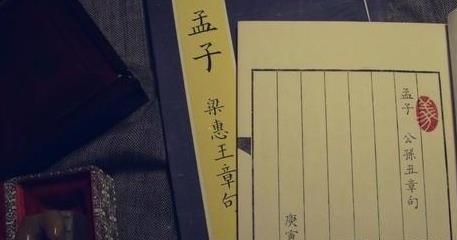 孟子
梁惠王章句
義
孟子 公孫丑章句
庚寅